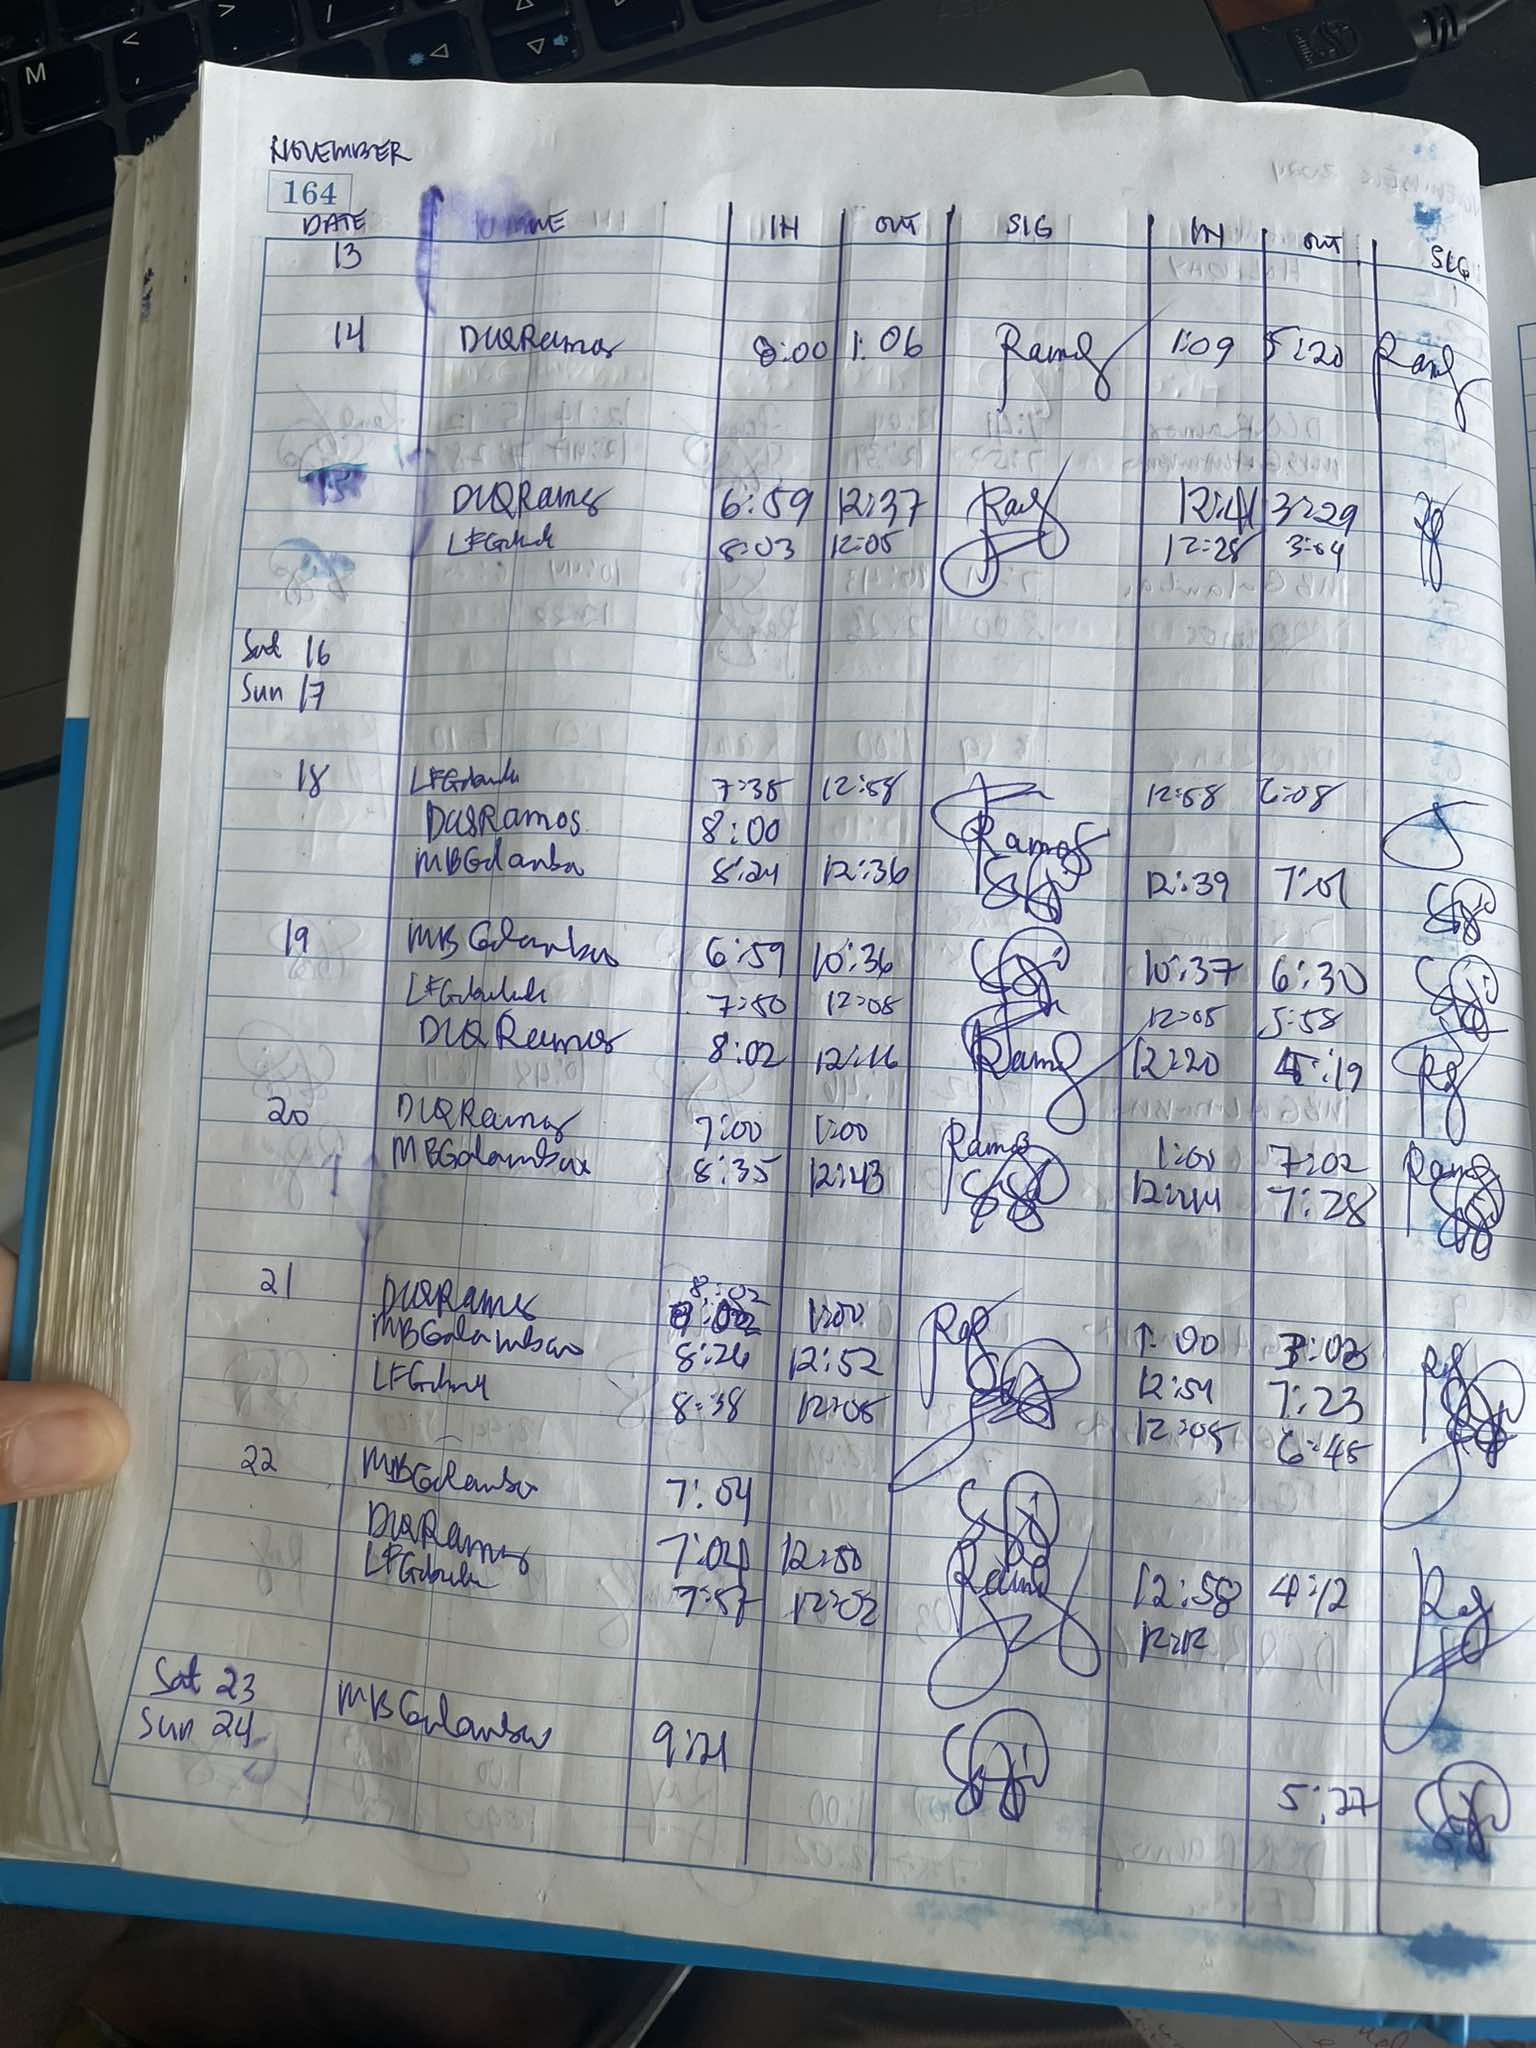 NOVEMBER
164
DATE NAME IN OUT SIG IN OUT SIG
13
14 DUQRamos 8:00 1:06 Ramos 1:09 5:20 Ramos
15 DUQRamos 6:59 12:37 12:41 3:29
8:03 12:05 12:28 3:04
Sat 16
Sun 17
18 7:35 12:58 12:58 6:08
DUQRamos 8:00 Ramos
MBGalambao 8:24 12:36 12:39 7:01
19 MBGalambao 6:59 10:36 10:37 6:30
7:50 12:05 12:05 5:58
DUQRamos 8:02 12:16 Ramos 12:20 5:19
20 DUQRamos 7:00 1:00 Ramos 1:00 7:02 Ramos
MBGalambao 8:35 12:43 12:44 7:28
21 DUQRamos 8:02 1:00 1:00 3:02
MBGalambao 8:26 12:52 12:54 7:23
8:38 12:05 12:05 6:45
22 MBGalambao 7:04
DUQRamos 7:04 12:50 Ramos 12:58 4:12
7:57 12:02 12:12
Sat 23 MBGalambao
Sun 24 9:21 5:27